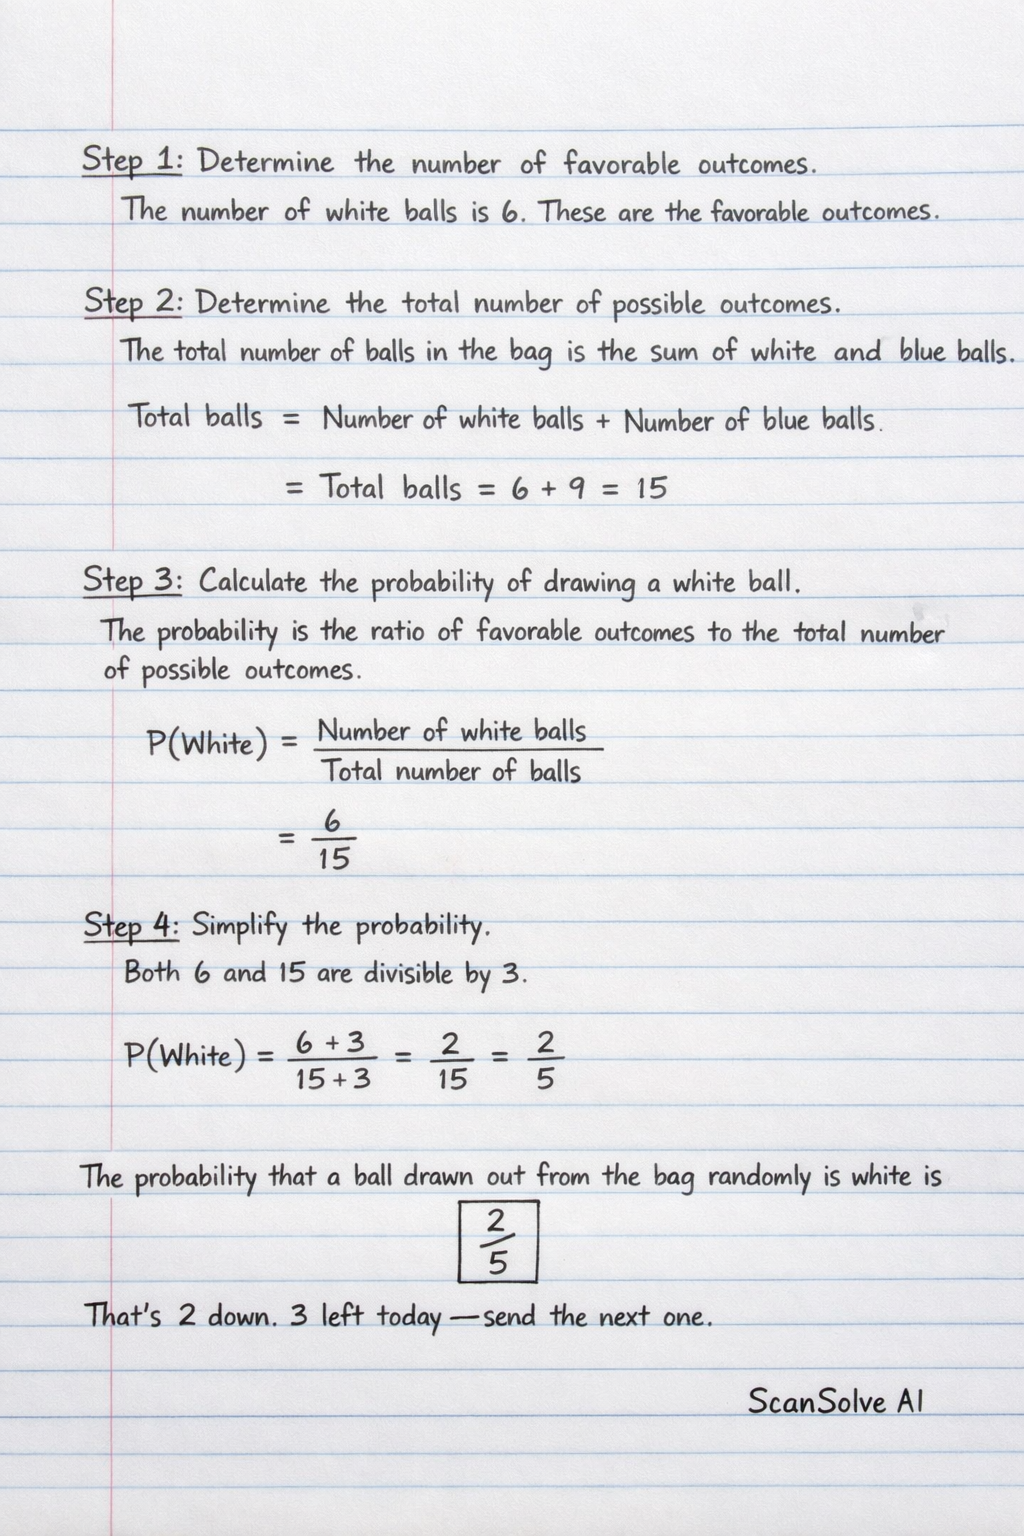 Step 1: Determine the number of favorable outcomes.
The number of white balls is 6. These are the favorable outcomes.
Step 2: Determine the total number of possible outcomes.
The total number of balls in the bag is the sum of white and blue balls.
Total balls = Number of white balls + Number of blue balls.
= Total balls = 6 + 9 = 15
Step 3: Calculate the probability of drawing a white ball.
The probability is the ratio of favorable outcomes to the total number
of possible outcomes.
P(White) = Number of white balls / Total number of balls
= 6/15
Step 4: Simplify the probability.
Both 6 and 15 are divisible by 3.
P(White) = 6 + 3 / 15 + 3 = 2/15 = 2/5
The probability that a ball drawn out from the bag randomly is white is
2/5
That's 2 down. 3 left today — send the next one.
ScanSolve AI